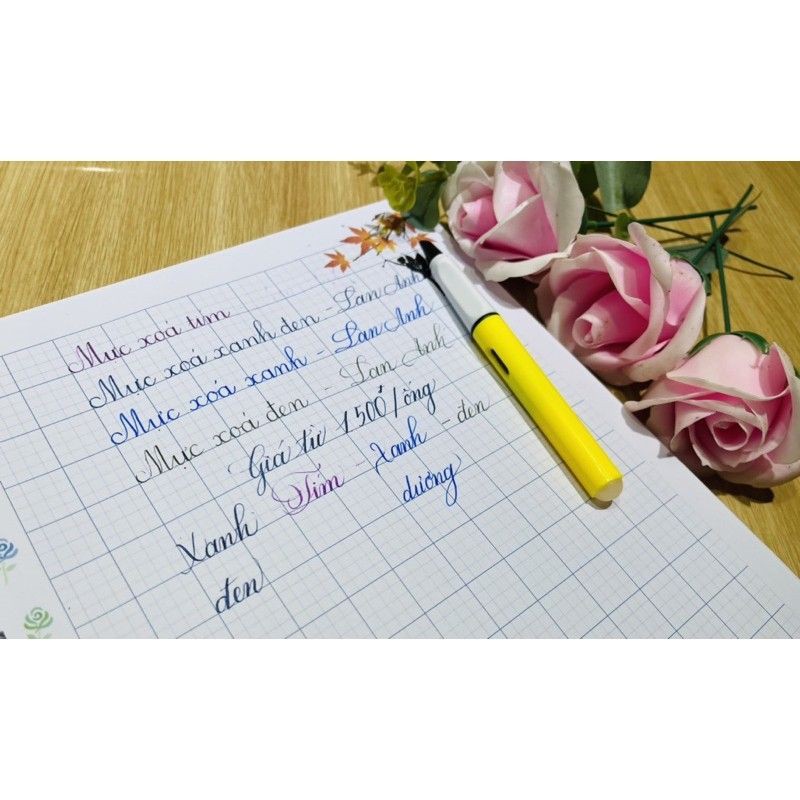 Mực xoá tím
Mực xoá xanh đen - Lan Anh
Mực xoá xanh - Lan Anh
Mực xoá đen - Lan Anh
Giá từ 1500đ/ống
Xanh đen
Tím - Xanh dương - đen